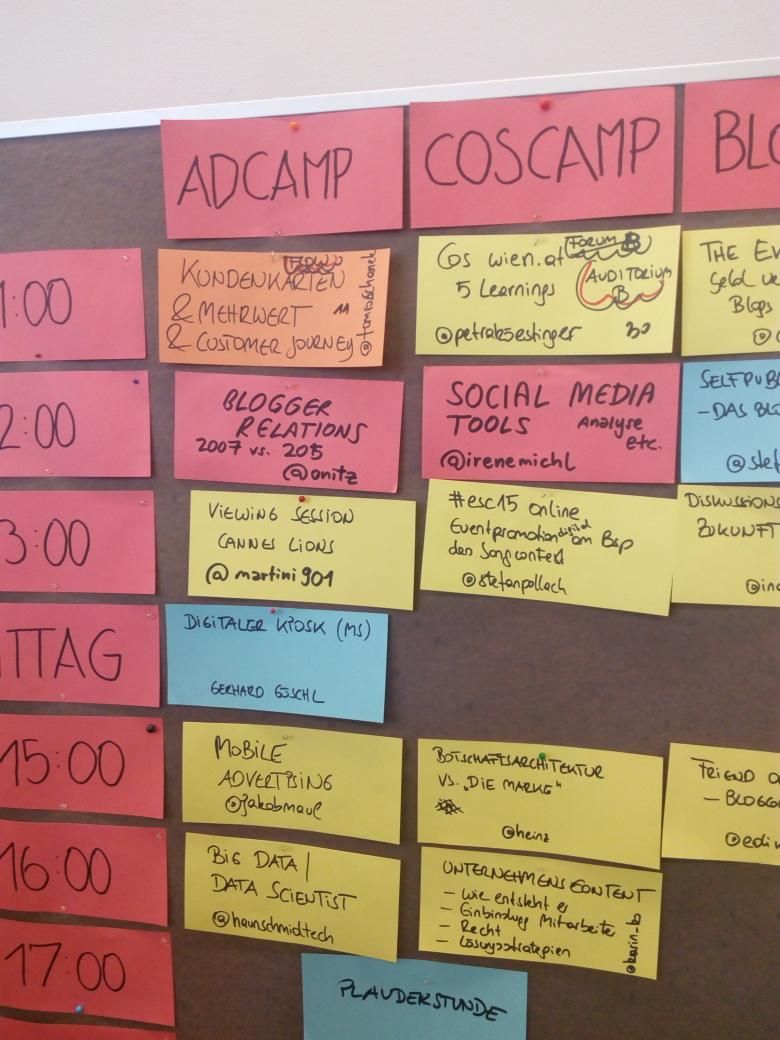 ADCAMP
COSCAMP
BLO
1:00
KUNDENKARTEN
& MEHRWERT
& CUSTOMER JOURNEY
11
Cos wien.at
FORUM B
5 Learnings
AUDITORIUM
B
@petraksestinger
30
THE EV
Geld ve
Blogs
@
2:00
BLOGGER
RELATIONS
2007 vs. 205
@onitz
SOCIAL MEDIA
TOOLS Analyse
etc.
@irenemichl
SELFPUB
- DAS BL
@stef
3:00
VIEWING SESSION
CANNES LIONS
@martini901
#esc15 online
Eventpromotion digital am Bsp
des Songcontest
@stefanpollach
DISKUSSIONS
ZUKUNFT
@in
ITTAG
DIGITALER KIOSK (MS)
GERHARD GÖSCHL
15:00
MOBILE
ADVERTISING
@jakobmaul
BOTSCHAFTSARCHITEKTUR
VS. „DIE MARKE"
@heinz
FRIEND O
- BLOGGE
@edi
16:00
BIG DATA |
DATA SCIENTIST
@haunschmidtech
UNTERNEHMENSCONTENT
- Wie entsteht er
- Einbindung Mitarbeite
- Recht
- Lösungsstrategien
@karin_to
17:00
PLAUDERSTUNDE